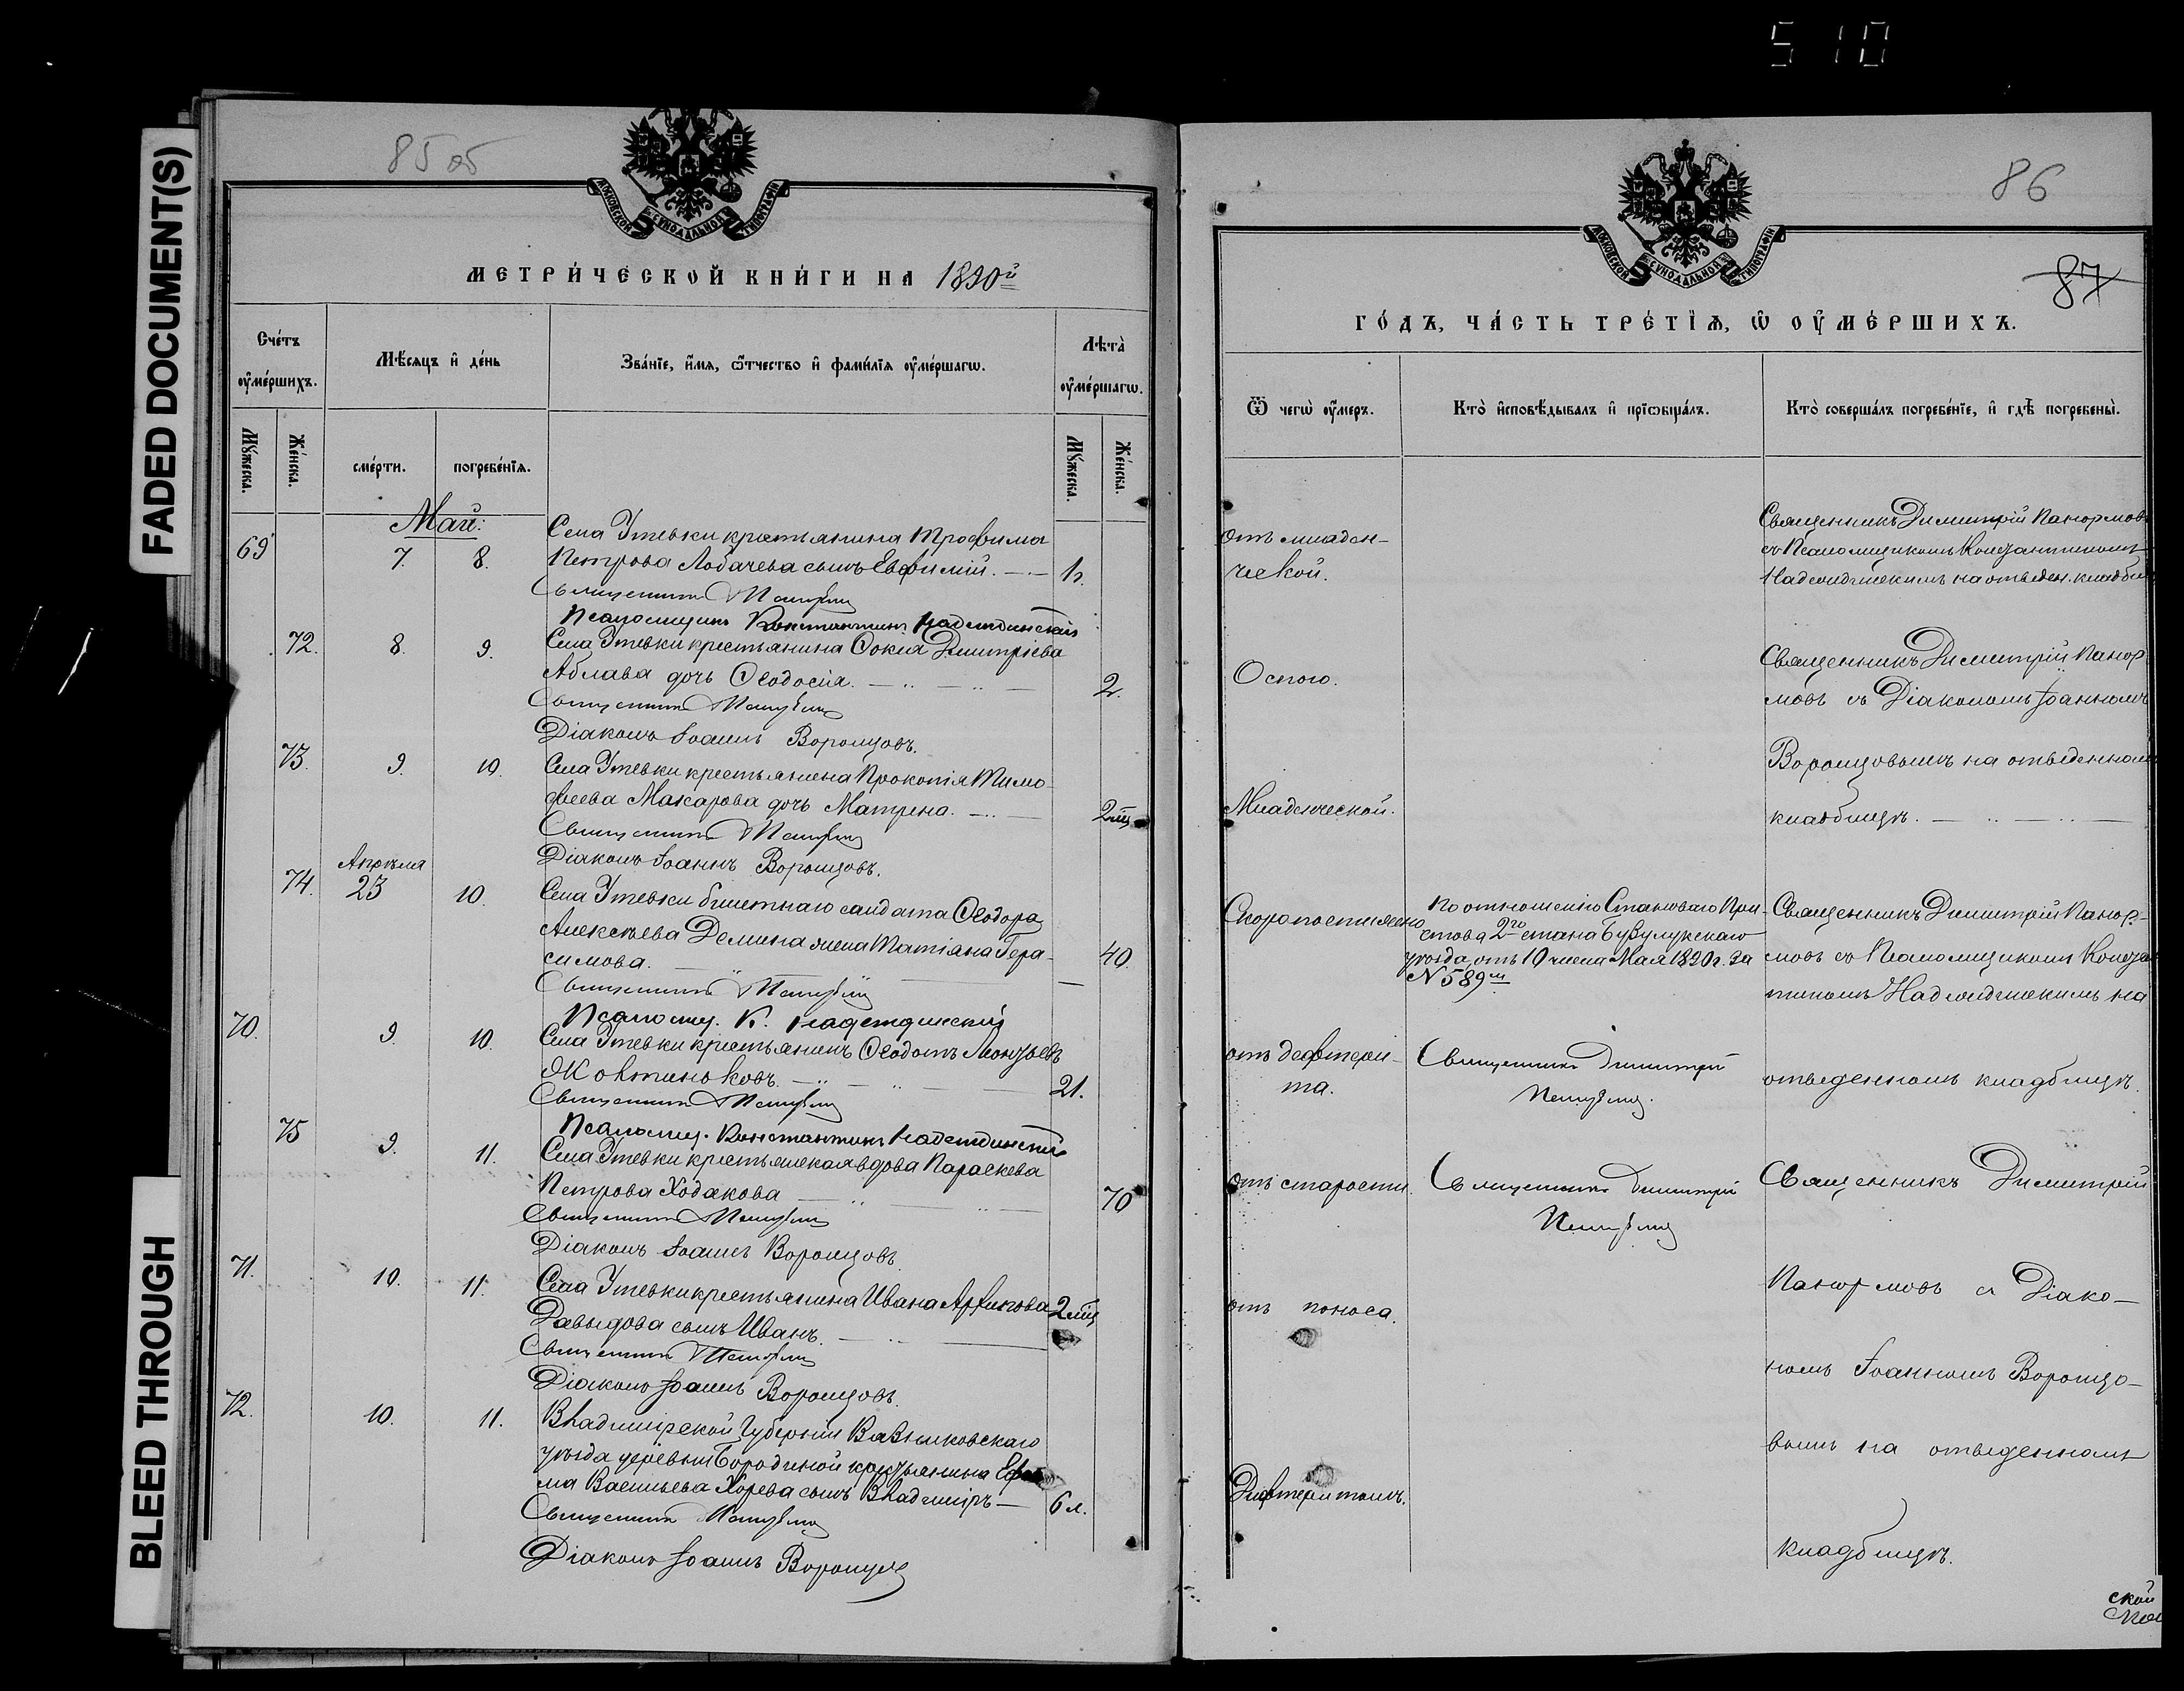 510
FADED DOCUMENT(S)
BLEED THROUGH
85 об
МОСКОВСКОЙ СѴНОДАЛЬНОЙ ТИПОГРАФІИ
МЕТРИ́ЧЕСКОЙ КНИ́ГИ НА 1890й
Сче́тъ ᲂу҆ме́ршихъ.
Мѣ́сяцъ и҆ де́нь
Зва́нїе, и҆́мѧ, ѻ҆́тчество и҆ фами́лїѧ ᲂу҆ме́ршагѡ.
Лѣ̑та ᲂу҆ме́ршагѡ.
Мꙋ́жеска.
Же́нска.
сме́рти.
погребе́нїѧ.
Мꙋ́жеска.
Же́нска.
Май:
69
7.
8.
Села Утевки крестьянина Трофима
Петрова Лобачева сынъ Евфимій.
1 г.
Священникъ
Псаломщикъ Константинъ Надеждинскій
72.
8.
9.
Села Утевки крестьянина Фокія Димитріева
Аблава дочь Ѳеодосія.
2.
Священникъ
Діаконъ Іоаннъ Воронцовъ.
73.
9.
10.
Села Утевки крестьянина Прокопія Тимо-
феева Макарова дочь Матрена.
2 мц
Священникъ
Діаконъ Іоаннъ Воронцовъ.
74.
Апрѣля
23
10.
Села Утевки билетнаго солдата Ѳеодора
Алексѣева Демина жена Татіана Гера-
симова.
40.
Священникъ
Псаломщ. К. Надеждинскій
70.
9.
10.
Села Утевки крестьянинъ Ѳеодотъ Леонтьевъ
Жовтиножовъ.
21.
Священникъ
Псаломщ. Константинъ Надеждинскій
75
9.
11.
Села Утевки крестьянская вдова Параскева
Петрова Ходакова
70
Священникъ
Діаконъ Іоаннъ Воронцовъ.
71.
10.
11.
Села Утевки крестьянина Ивана
2 мц
Давыдова сынъ Иванъ.
Священникъ
Діаконъ Іоаннъ Воронцовъ.
72.
10.
11.
Владимірской Губерніи Вязниковскаго
уѣзда деревни Бородиной крестьянина
ма Васильева Хорева сынъ Владиміръ
6 л.
Священникъ
Діаконъ Іоаннъ Воронцовъ
86
87
МОСКОВСКОЙ СѴНОДАЛЬНОЙ ТИПОГРАФІИ
ГО́ДЪ, ЧА́СТЬ ТРЕ́ТЇѦ, Ѽ ОУ҆МЕ́РШИХЪ.
Ѿ чегѡ̀ ᲂу҆́меръ.
Кто̀ и҆сповѣ́дывалъ и҆ прїѡбща́лъ.
Кто̀ соверша́лъ погребе́нїе, и҆ гдѣ̀ погребены̀.
отъ младен-
ческой.
Священникъ Димитрій Панормовъ
съ Псаломщикомъ Константиномъ
Надеждинскимъ на отведен. кладби
Оспою.
Священникъ Димитрій Панор-
мовъ съ Діакономъ Іоанномъ
Воронцовымъ на отведенномъ
кладбищѣ.
Младенческой.
Скоропостижно
По отношенію Становаго При-
става 2го стана Бузулукскаго
уѣзда, отъ 10 числа Мая 1890 г. за
№ 589м
Священникъ Димитрій Панор-
мовъ съ Псаломщикомъ Констан
тиномъ Надеждинскимъ на
отведенномъ кладбищѣ.
отъ дефтери-
та.
Священникъ Димитрій
отъ старости.
Священникъ Димитрій
Священникъ Димитрій
Панормовъ съ Діако-
номъ Іоанномъ Воронцо-
вымъ на отведенномъ
кладбищѣ.
отъ поноса.
Дифтеритомъ.
ской